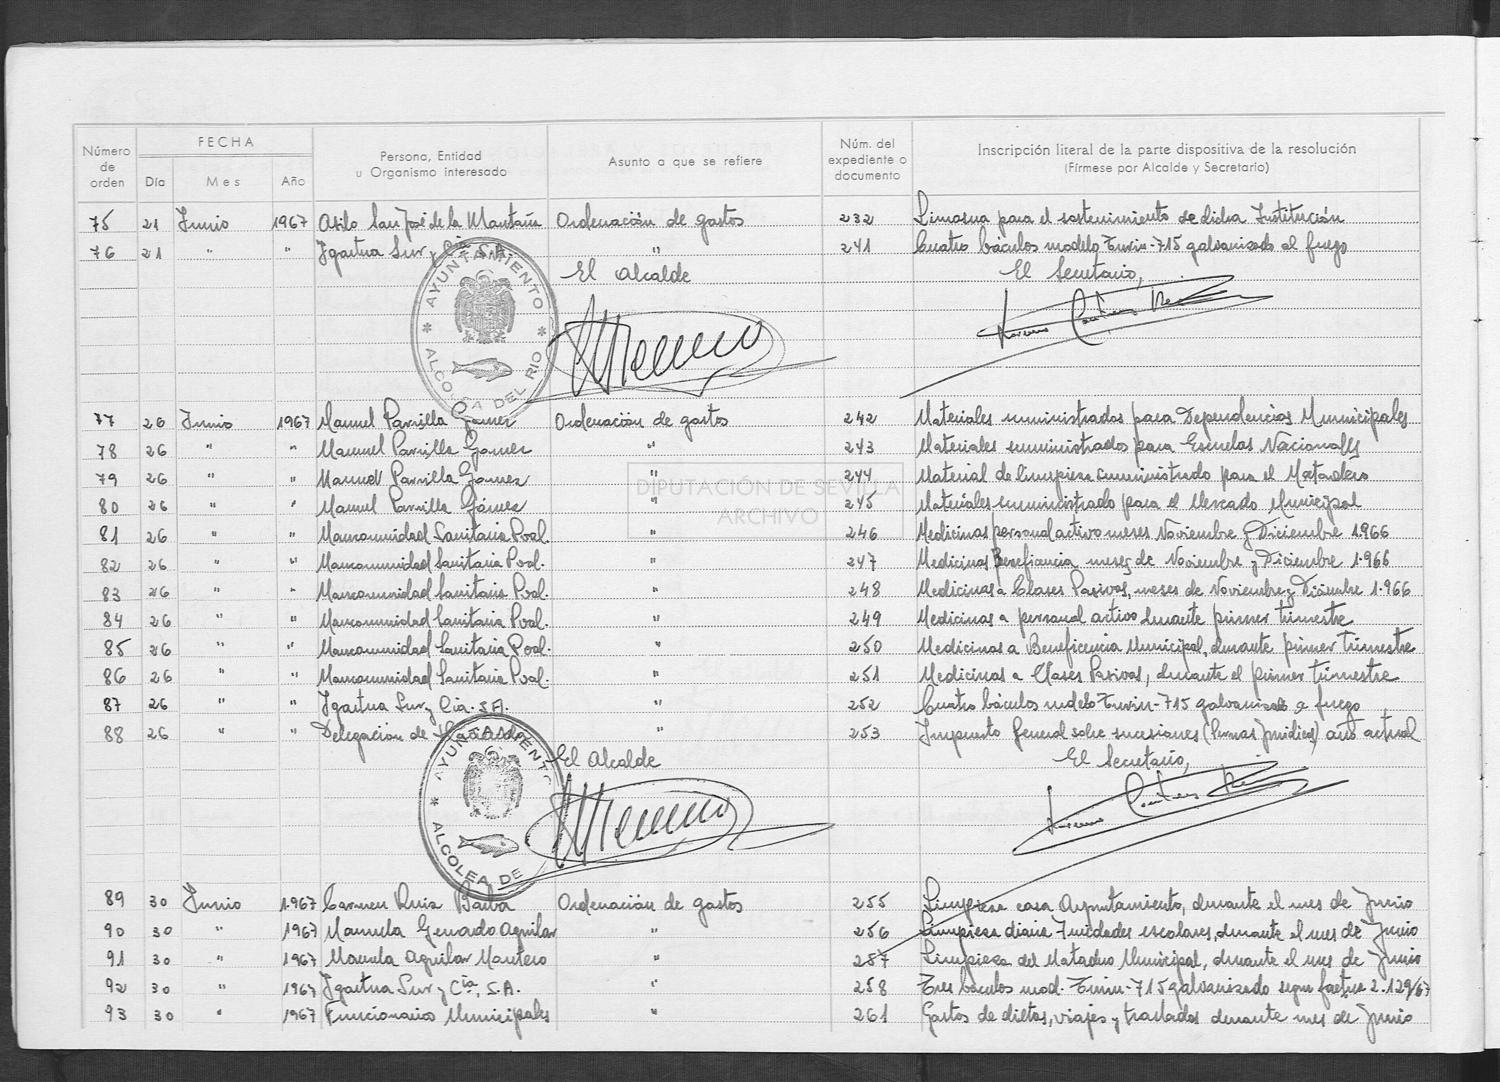 Número de orden
FECHA
Día Mes Año
Persona, Entidad u Organismo interesado
Asunto a que se refiere
Núm. del expediente o documento
Inscripción literal de la parte dispositiva de la resolución
(Fírmese por Alcalde y Secretario)
75 21 Junio 1967 Asilo San José de la Montaña Ordenación de gastos 232 Limosna para el sostenimiento de dicha Institución
76 21 " " Igartua Sur y Cía S.A. " 241 Cuatro báculos modelo Turin-715 galvanizado al fuego
El Alcalde El Secretario,
AYUNTAMIENTO
ALCOLEA DEL RIO
77 26 Junio 1967 Manuel Parrilla Gomez Ordenación de gastos 242 Materiales suministrados para Dependencias Municipales
78 26 " " Manuel Parrilla Gomez " 243 Materiales suministrados para Escuelas Nacionales
79 26 " " Manuel Parrilla Gómez " 244 Material de limpieza suministrado para el Matadero
80 26 " " Manuel Parrilla Gómez " 245 Materiales suministrado para el Mercado Municipal
DIPUTACIÓN DE SEVILLA
ARCHIVO
81 26 " " Mancomunidad Sanitaria Proal. " 246 Medicinas personal activo meses Noviembre y Diciembre 1.966
82 26 " " Mancomunidad Sanitaria Proal. " 247 Medicinas Beneficencia meses de Noviembre y Diciembre 1.966
83 26 " " Mancomunidad Sanitaria Proal. " 248 Medicinas a Clases Pasivas, meses de Noviembre y Diciembre 1.966
84 26 " " Mancomunidad Sanitaria Proal. " 249 Medicinas a personal activo durante primer trimestre
85 26 " " Mancomunidad Sanitaria Proal. " 250 Medicinas a Beneficencia Municipal, durante primer trimestre
86 26 " " Mancomunidad Sanitaria Proal. " 251 Medicinas a Clases Pasivas, durante el primer trimestre
87 26 " " Igartua Sur y Cía. S.A. " 252 Cuatro báculos modelo Turin-715 galvanizado a fuego
88 26 " " Delegación de Hacienda " 253 Impuesto General sobre sucesiones (Personas Jurídicas) año actual
El Alcalde El Secretario,
AYUNTAMIENTO
ALCOLEA DE
89 30 Junio 1.967 Carmen Ruiz Barba Ordenación de gastos 255 Limpieza casa Ayuntamiento, durante el mes de Junio
90 30 " 1967 Manuela Gerardo Aguilar " 256 Limpieza diaria 7 unidades escolares, durante el mes de Junio
91 30 " 1967 Manuela Aguilar Montero " 257 Limpieza del Matadero Municipal, durante el mes de Junio
92 30 " 1967 Igartua Sur y Cía, S.A. " 258 Tres báculos mod. Turin-715 galvanizado segun factura 2.129/67
93 30 " 1967 Funcionarios Municipales " 261 Gastos de dietas, viajes y traslados durante mes de Junio